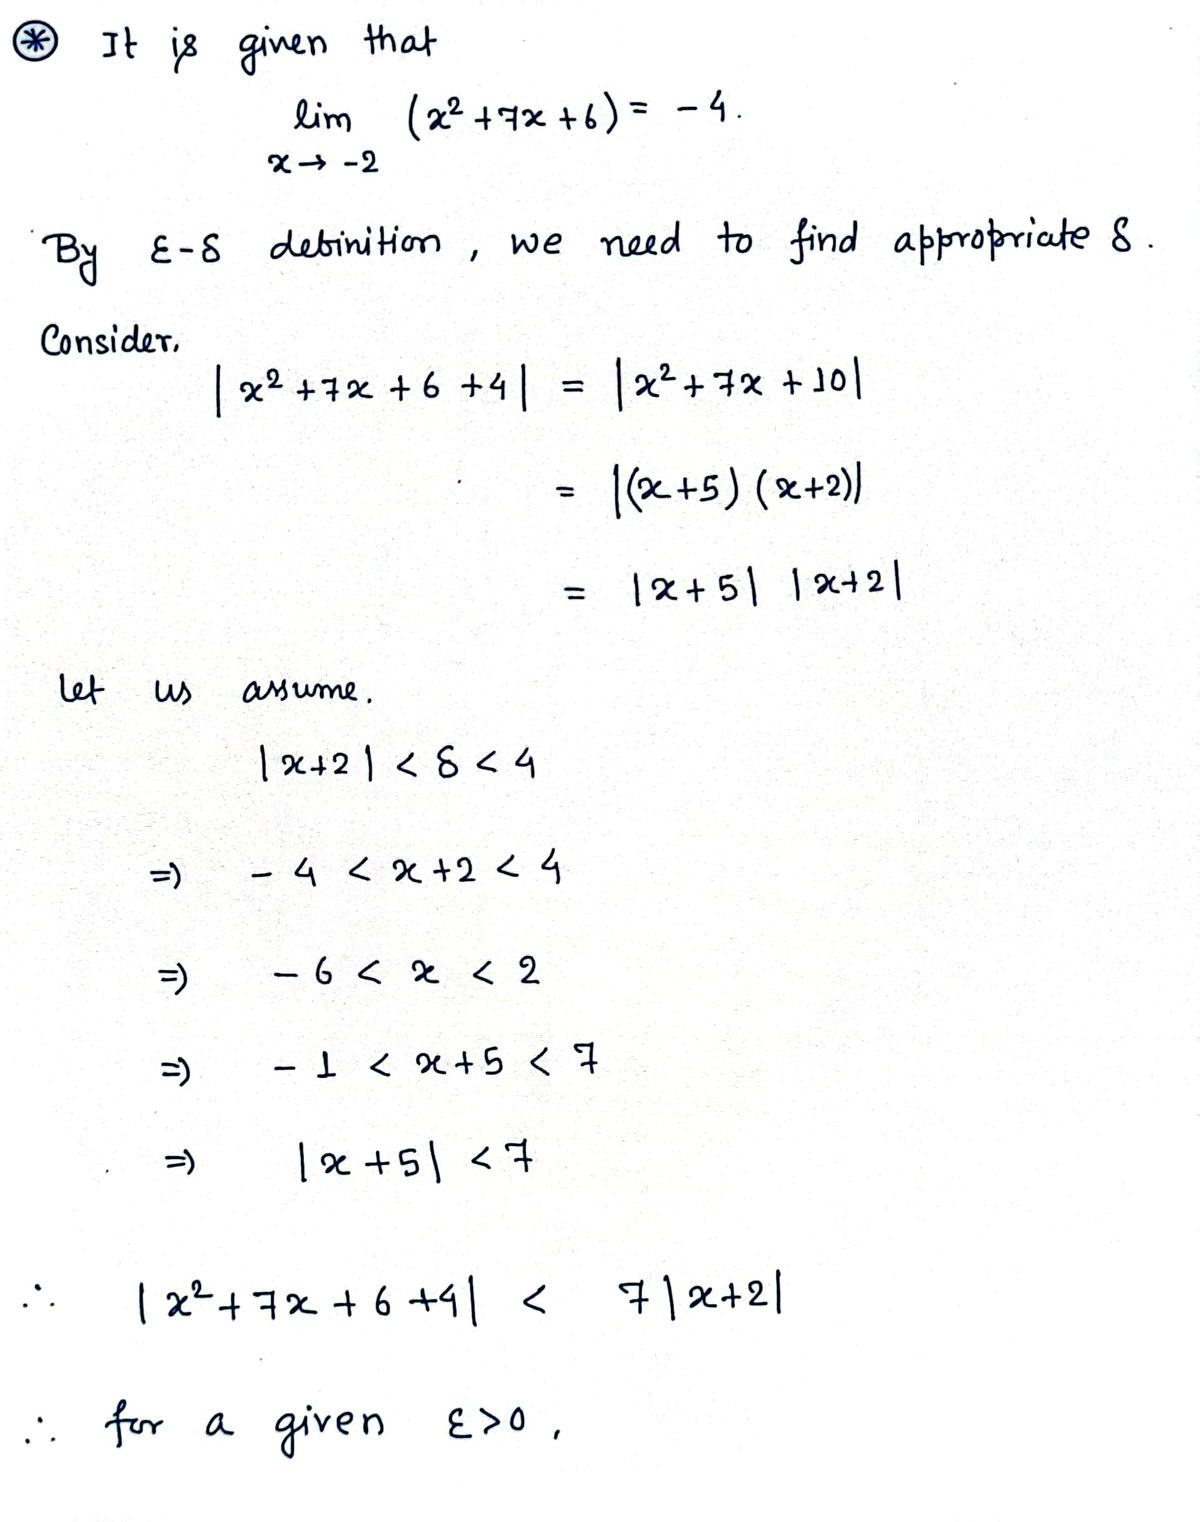 ⊛ It is given that
lim (x² + 7x + 6) = - 4.
x → -2
By ε-δ debinition, we need to find appropriate δ.
Consider,
|x² + 7x + 6 + 4| = |x² + 7x + 10|
= |(x+5) (x+2)|
= |x + 5| |x+2|
let us assume.
|x+2| < δ < 4
⇒ - 4 < x + 2 < 4
⇒ - 6 < x < 2
⇒ - 1 < x + 5 < 7
⇒ |x + 5| < 7
∴ |x² + 7x + 6 + 4| < 7 |x+2|
∴ for a given ε > 0,